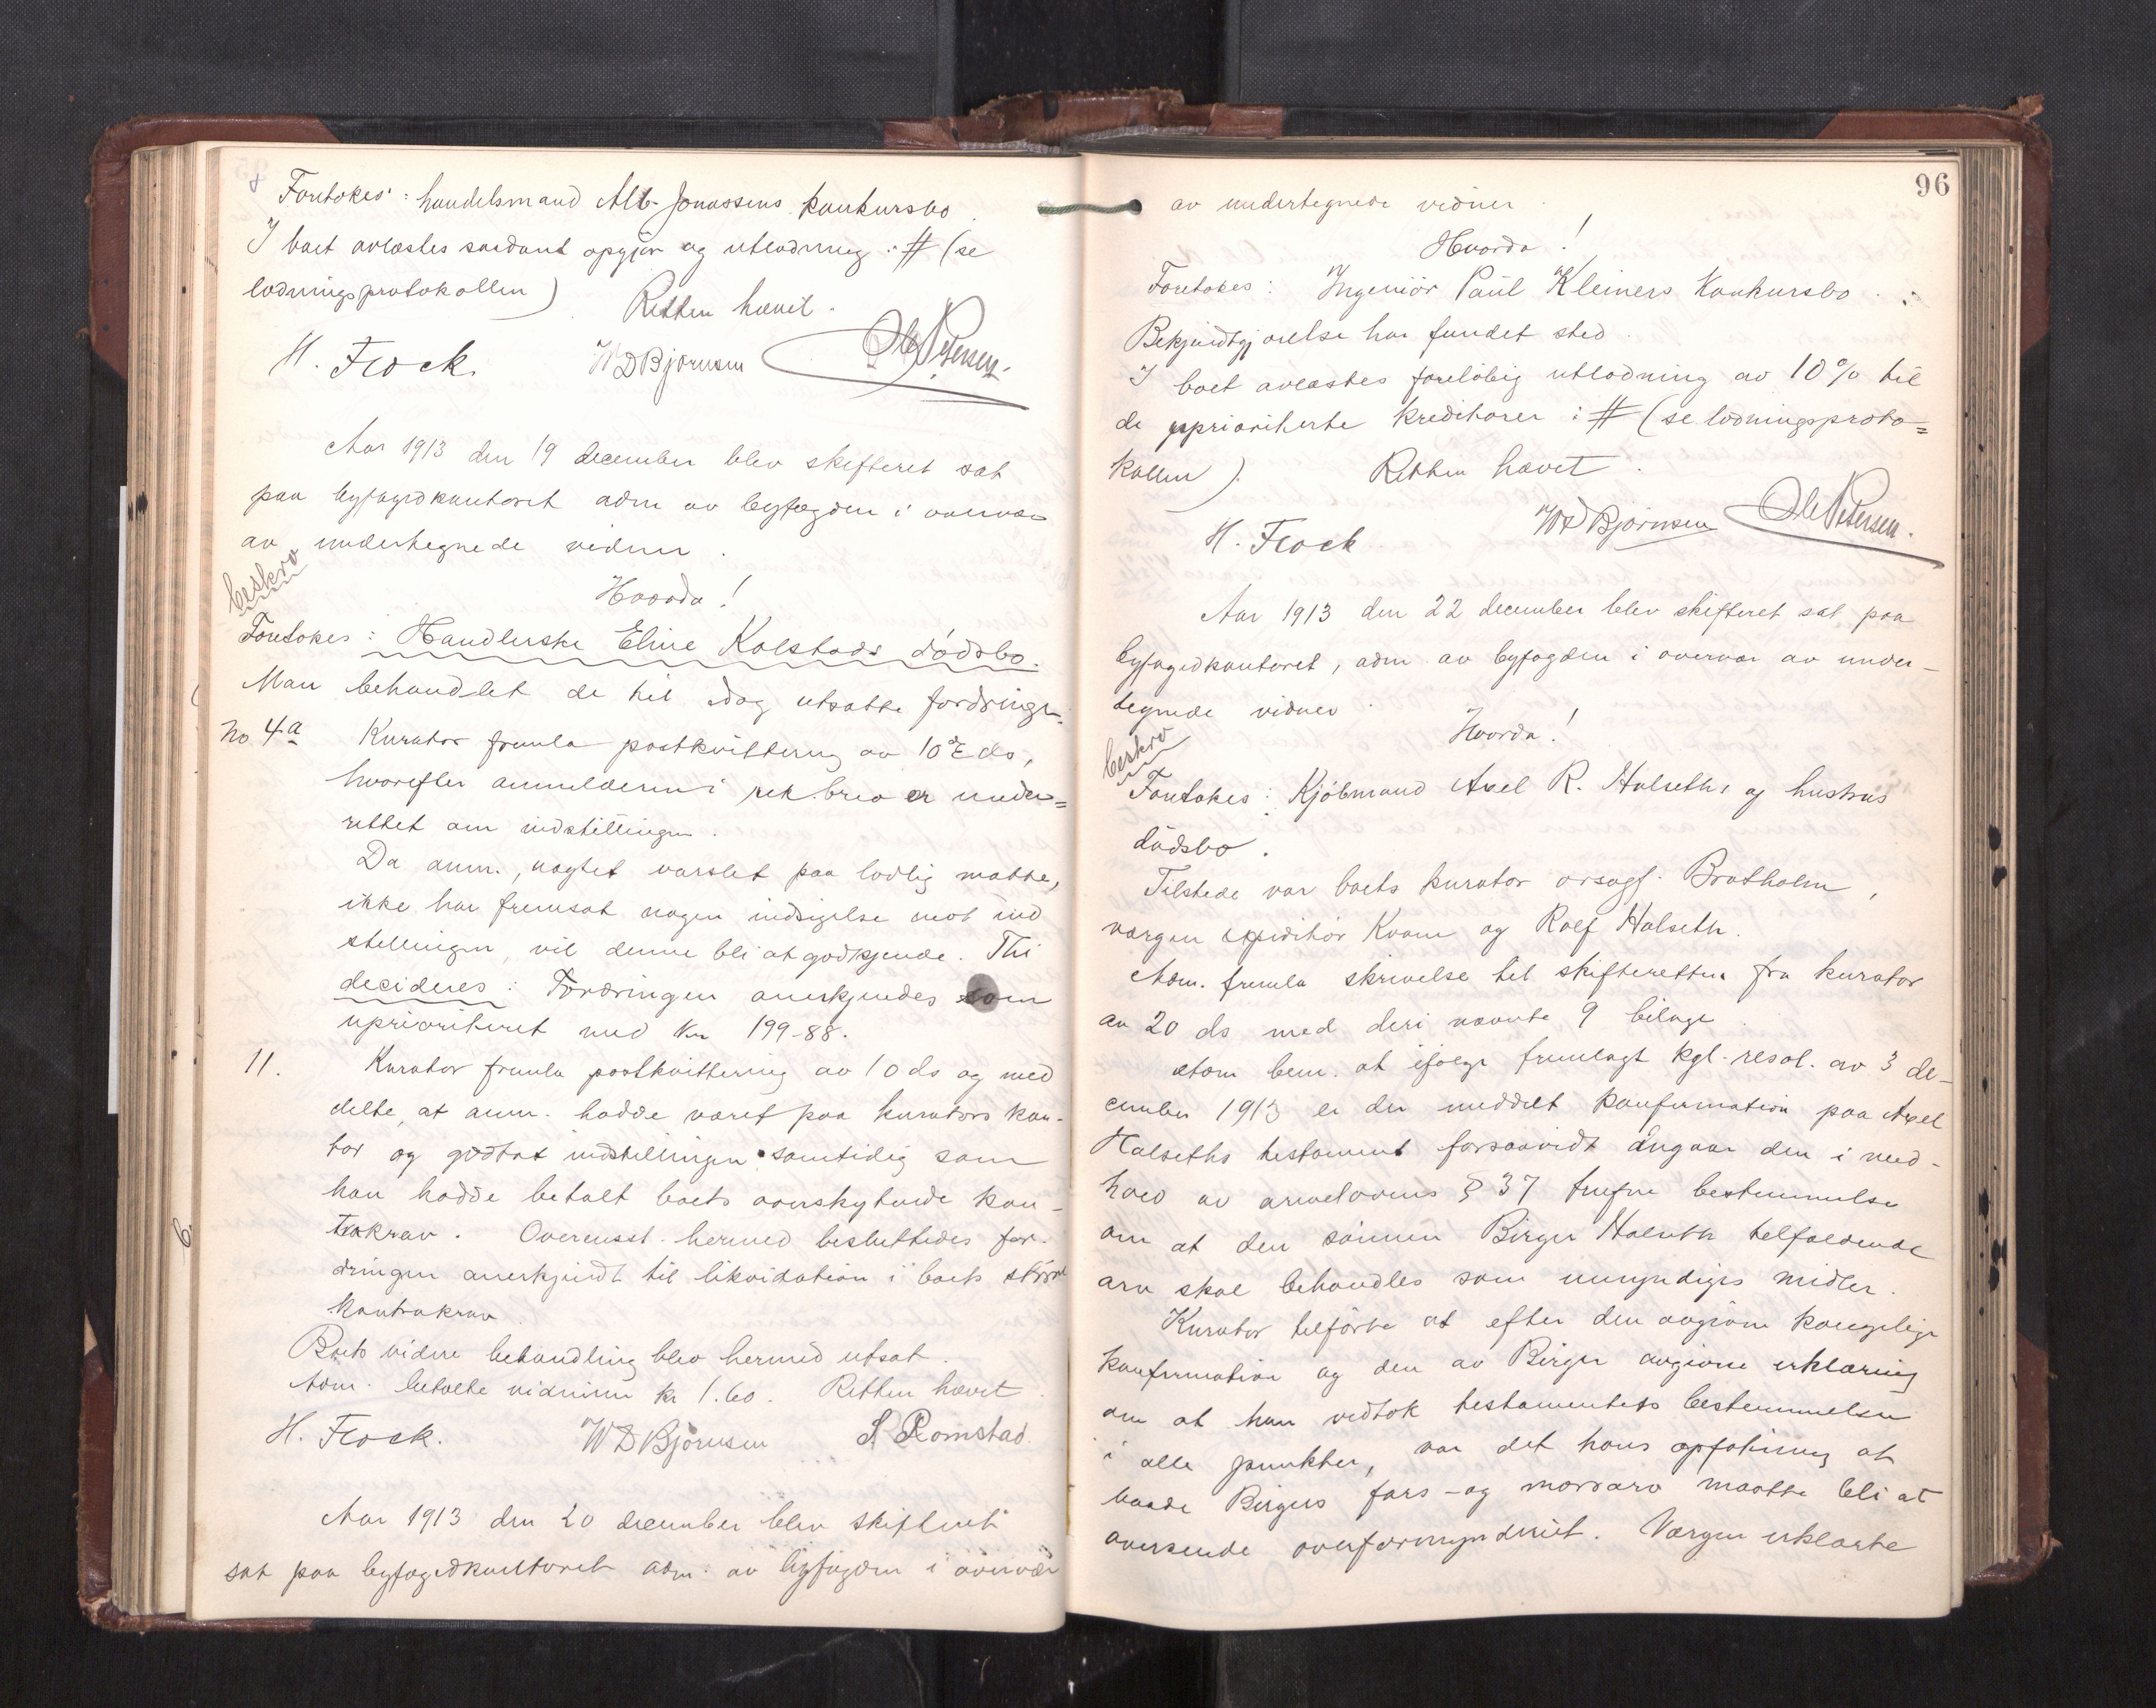 Foretokes: handelsmand Alb. Jonassens konkursbo.
I boet avlastes saadant opgjør og utlodning: # (se
lodningsprotokollen)
Retten hævet.
H. Flock. WDBjørnsen Ole Petersen.
Aar 1913 den 19 december blev skifteret sat
paa byfogedkontoret adm av byfogden i overvær
av undertegnede vidner.
beskrev
Hvorda!
Foretokes: Handlerske Eline Kolstads dødsbo.
Man behandlet de til idag utsatte fordringer.
No 4a Kurator fremla postkvittering av 10de ds,
hvorefter anmelderen i rek. brev er under=
rettet om indstillingen.
Da anm., uagtet varslet paa lovlig maate,
ikke har fremsat nogen indsigelse mot ind
stillingen, vil denne bli at godkjende. Thi
decideres: Fordringen anerkjendes som
uprioriteret med Kr 199-88.
11. Kurator fremla postkvittering av 10 ds og med
delte, at anm. hadde været paa kurators kon-
tor og godtat indstillingen samtidig som
han hadde betalt boets overskytende kon-
trakrav. Overensst. hermed besluttedes for-
dringen anerkjendt til likvidation i boets større
kontrakrav.
Boets videre behandling blev hermed utsat.
Adm. betalte vidnerne kr 1.60. Retten hævet.
H. Flock. WDBjørnsen S. Romstad.
Aar 1913 den 20 december blev skifteret
sat paa byfogedkontoret adm. av byfogden i overvær
96
av undertegnede vidner.
Hvorda!
Foretokes: Ingeniør Paul Kleiners Konkursbo.
Bekjendtgjørelse har fundet sted.
I boet avlastes foreløbig utlodning av 10% til
de uprioriterte kreditorer: # (se lodningsproto=
kollen).
Retten hævet.
H. Flock WDBjørnsen Ole Petersen.
Aar 1913 den 22 december blev skifteret sat paa
byfogedkontoret, adm av byfogden i overvær av under-
tegnede vidner.
Hvorda!
beskrev
Foretokes: Kjøbmand Axel R. Halseths og hustrus
dødsbo.
Tilstede var boets kurator orsagf. Bratholm,
værgen expeditør Kvam og Rolf Halseth.
Adm. fremla skrivelse til skifteretten fra kurator
av 20 ds med deri nævnte 9 bilage.
Adm bem. at ifølge fremlagt kgl. resol. av 3 de-
cember 1913 er der meddelt konfirmation paa Axel
Halseths testament forsaavidt angaar den i med-
hold av arvelovens § 37 trufne bestemmelse
om at den sønnen Birger Halseth tilfaldende
arv skal behandles som umyndiges midler.
Kurator tilførte at efter den avgivne kongelige
konfirmation og den av Birger avgivne erklæring
om at han vedtok testamentets bestemmelser
i alle punkter, var det hans opfatning at
baade Birgers fars- og morsarv maatte bli at
oversende overformynderiet. Værgen erklærte